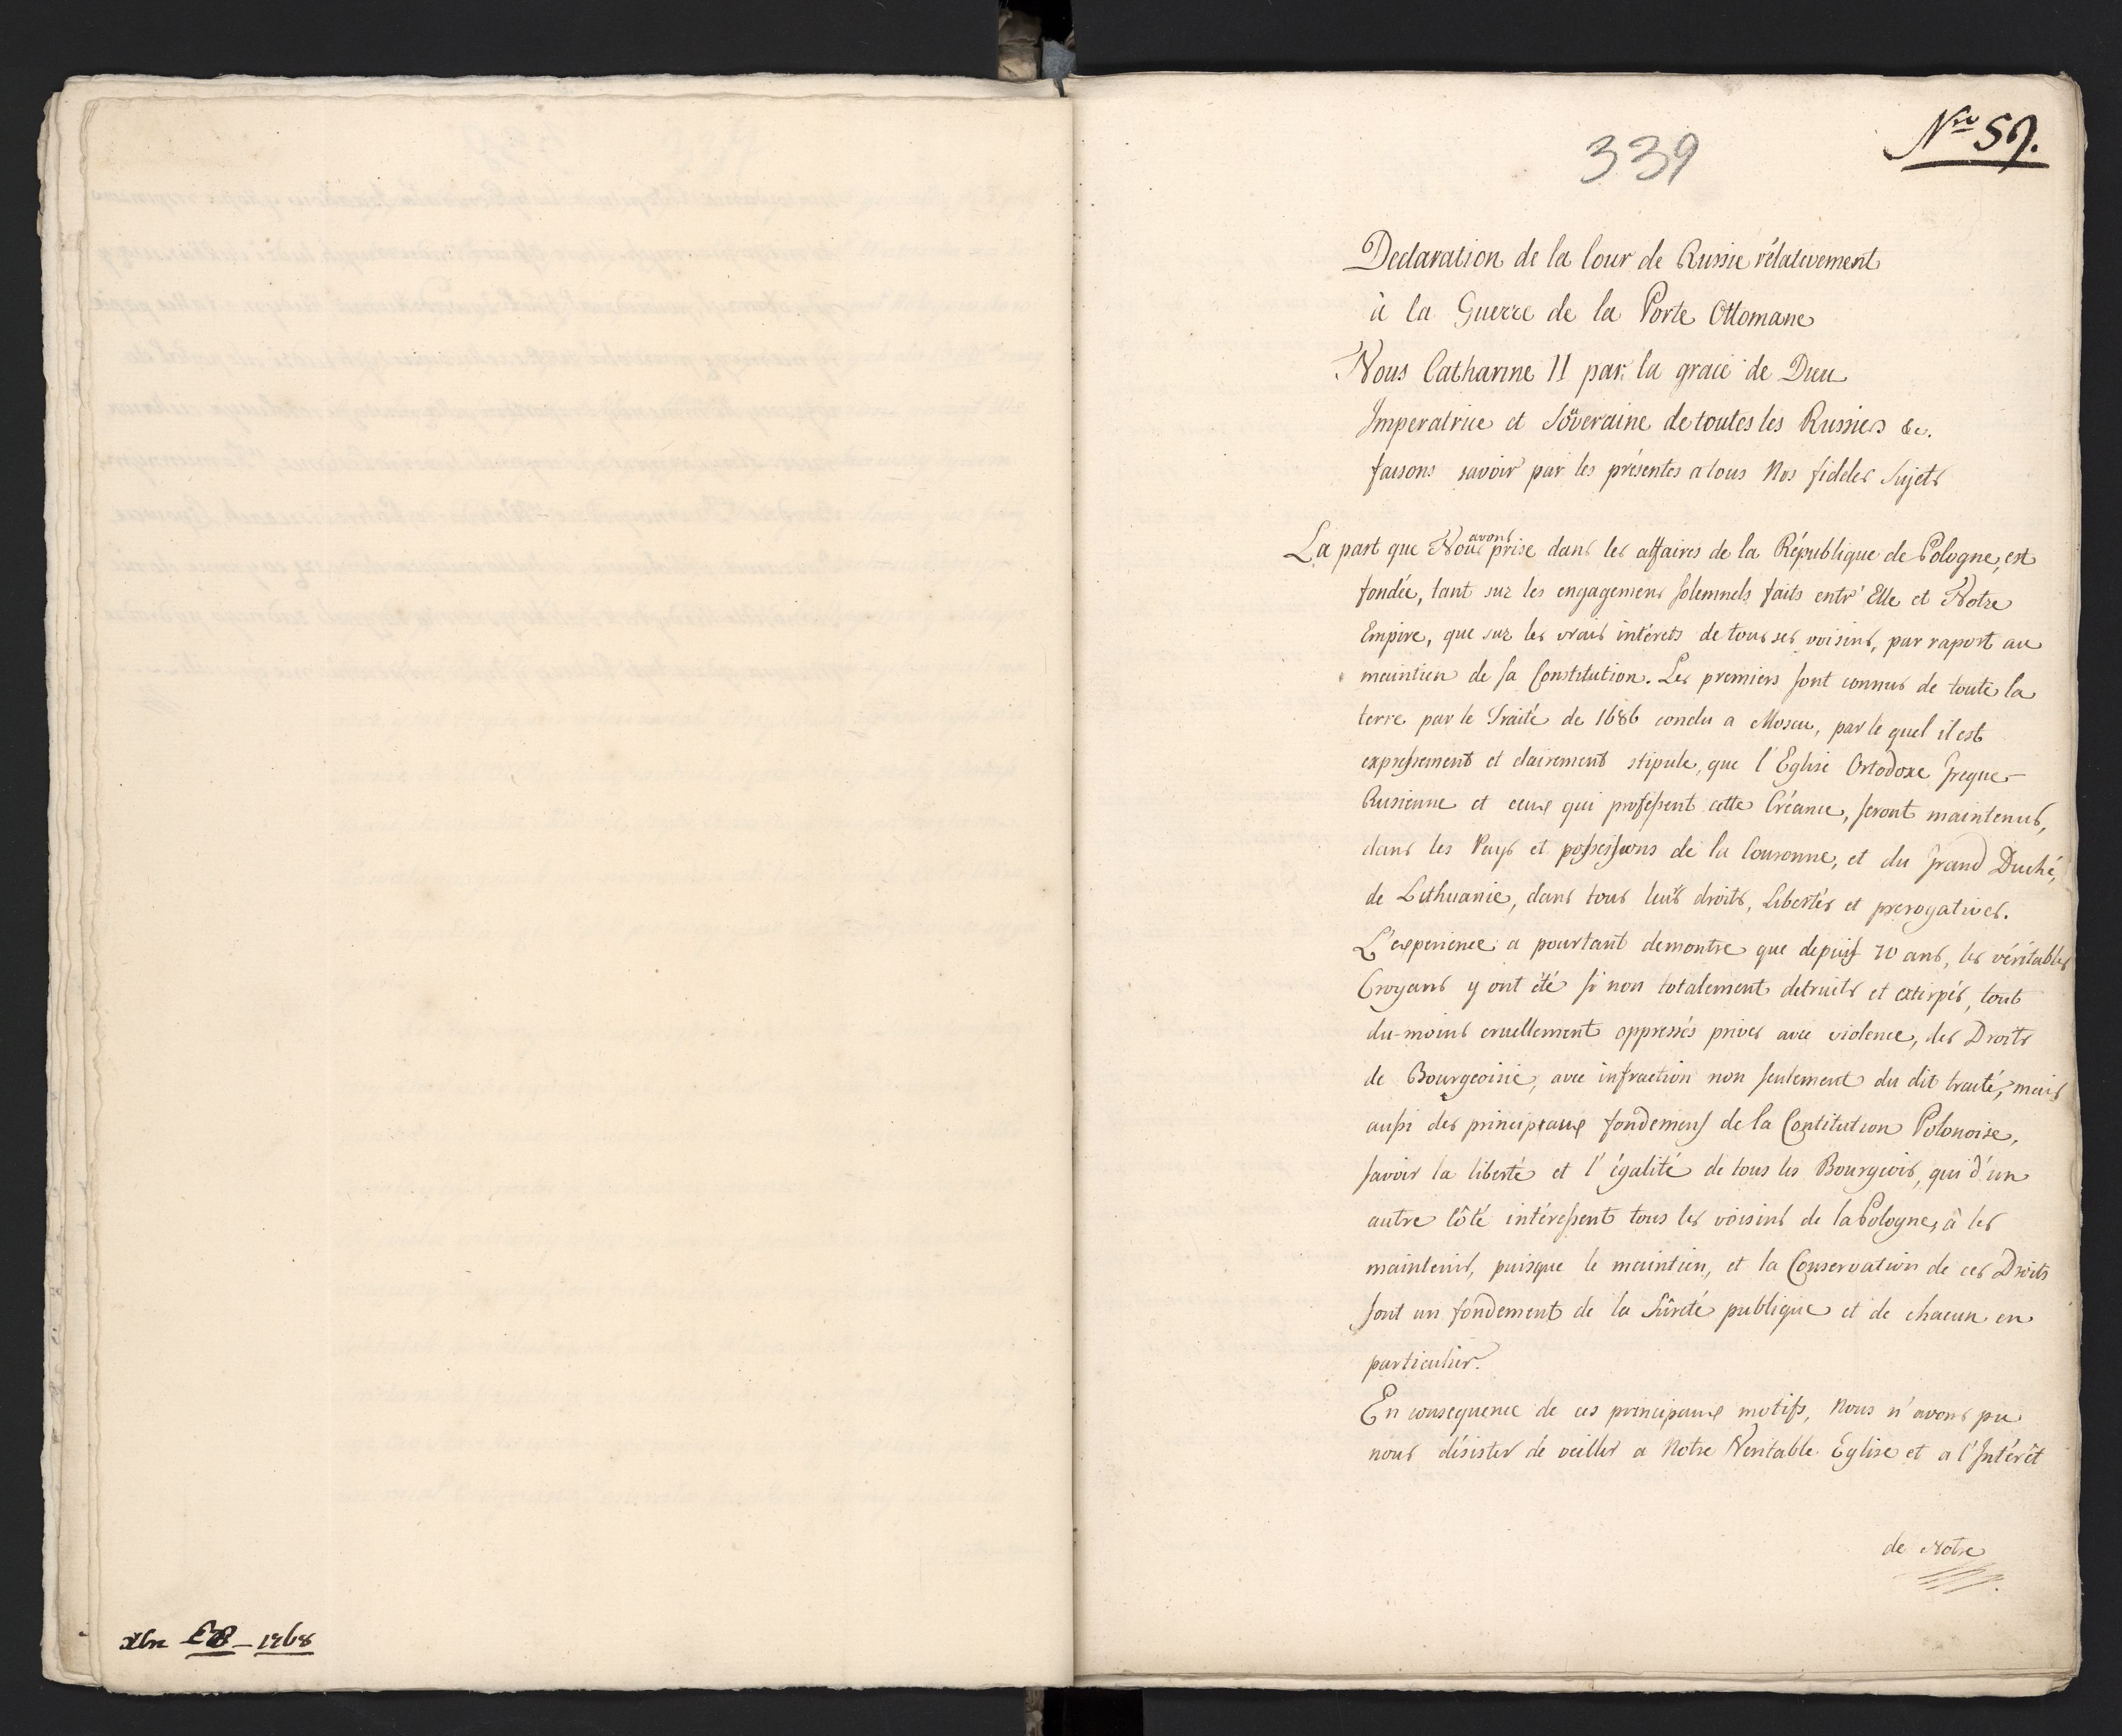 Nro 57.
339
Declaration de la Cour de Russie rélativement
à la Guerre de la Porte Ottomane
Nous Catharine II par la grace de Dieu
Imperatrice et Soüveraine de toutes les Russies &c.
faisons savoir par les présentes a tous Nos fideles Sujets
La part que Nous avons prise dans les affaires de la République de Pologne, est
fondée, tant sur les engagemens solemnels faits entr' Elle et Notre
Empire, que sur les vrais intérets de tous ses voisins, par raport au
maintien de sa Constitution. Les premiers sont connus de toute la
terre par le Traité de 1686 conclu a Moscu, par le quel il est
expressement et clairement stipule, que l'Eglise Ortodoxe Greque-
Rusienne et ceux qui professent cette Créance, seront maintenus,
dans les Pays et possessions de la Couronne, et du Grand Duché,
de Lithuanie, dans tous leurs droits, Libertés et prerogatives.
L'experience a pourtant demontre que depuis 70 ans, les véritables
Croyans y ont été si non totalement detruits et extirpés, tout
du-moins cruellement oppressés prives avec violence, des Droits
de Bourgeoisie, avec infraction non seulement du dit traité, mais
aussi des principaux fondemens de la Constitution Polonoise,
savoir la liberté et l'égalité de tous les Bourgeois, qui d'un
autre Côté intéressent tous les voisins de la Pologne, à les
maintenir, puisque le maintien, et la Conservation de ces Droits
sont un fondement de la Sûreté publique et de chacun en
particulier.
En consequence de ces principaux motifs, Nous n'avons pu
nous désister de veiller a Notre Veritable Eglise et a l'Intérêt
de Notre
Xbr 1768